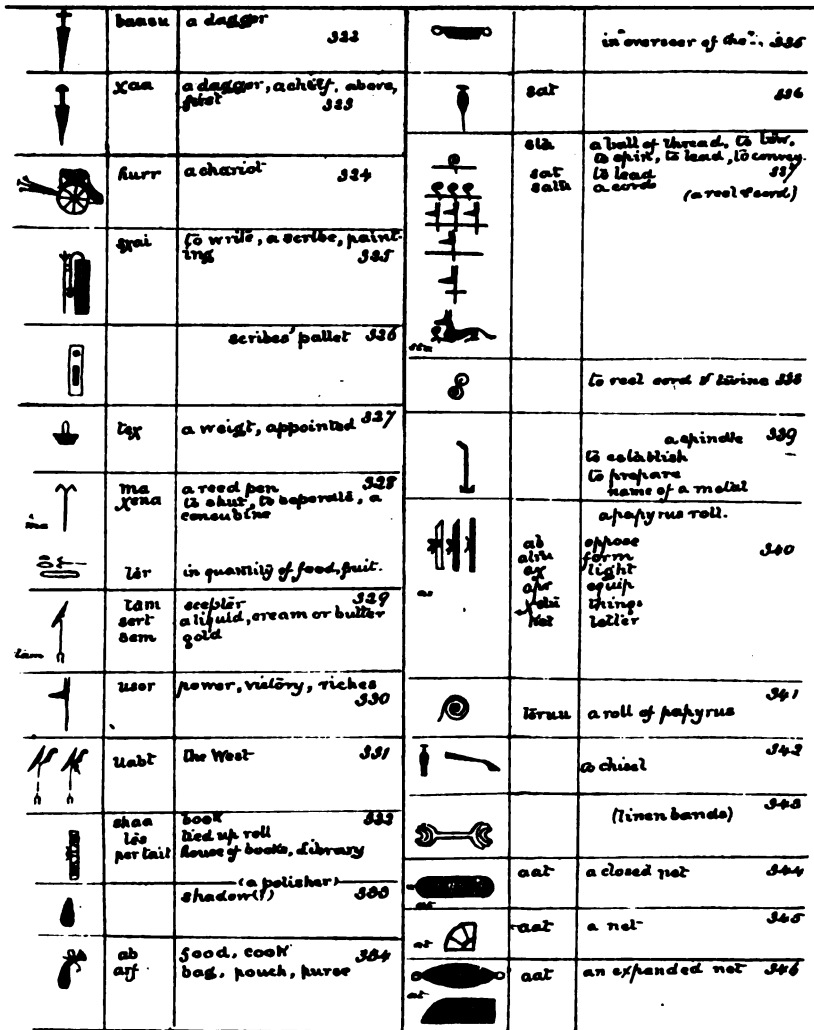 baasu a dagger 322
χaa a dagger, a chief, above,
first 323
hurr a chariot 324
sχai to write, a scribe, paint-
ing 325
scribes' pallet 326
teχ a weigt, appointed 327
ma a reed pen 328
χena to shut, to seperate, a
concubine
ma
ter in quantity of food, fruit.
tam scepter 329
sert a liquid, cream or butter
sem gold
tam
user power, victory, riches
330
uabt the West 331
shaa book 332
tes tied up roll
per tait house of books, Library
(a polisher)
shadow(!) 333
ab good, cook 334
arf bag, pouch, purse
in "overseer of the". 335
sat 336
sta a ball of thread, to tow,
to spin, to lead, to convey.
sat to lead 337
satu a cord
(a reel & cord)
to reel cord & twine 338
a spindle 339
to establish
to prepare
name of a metal
a papyrus roll.
ab oppose 340
atru form
aχ light
apr equip
things
letter
a roll of papyrus 341
a chisel 342
(linen bands) 343
aat a closed net 344
at
aat a net 345
at
aat an expanded net 346
at